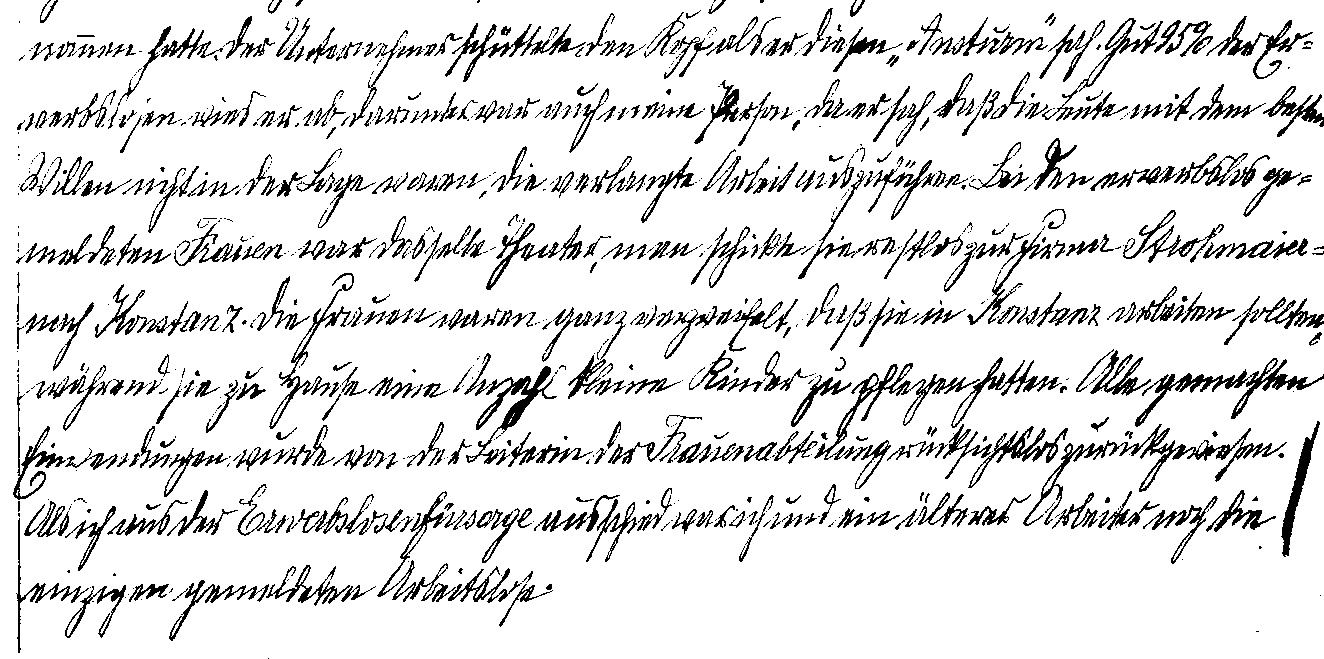 nannen hatte. Der Unternehmer schüttelte den Kopf als er diesen „Ansturm“ sah. Gut 95% der Er=
werbslosen wies er ab, darunter war auch meine Person, da er sah, daß die Leute mit dem besten
Willen nicht in der Lage waren, die verlangte Arbeit auszuführen. Bei den erwerbslos ge=
meldeten Frauen war dasselbe Theater, man schickte sie restlos zur Firma Strohmaier=
nach Konstanz. Die Frauen waren ganz verzweifelt, daß sie in Konstanz arbeiten sollten,
während sie zu Hause eine Anzahl kleine Kinder zu pflegen hatten. Alle gemachten
Einwendungen wurde von der Leiterin der Frauenabteilung rücksichtslos zurückgewiesen.
Als ich aus der Erwerbslosenfürsorge ausschied war ich und ein älterer Arbeiter noch die
einzigen gemeldeten Arbeitslose.